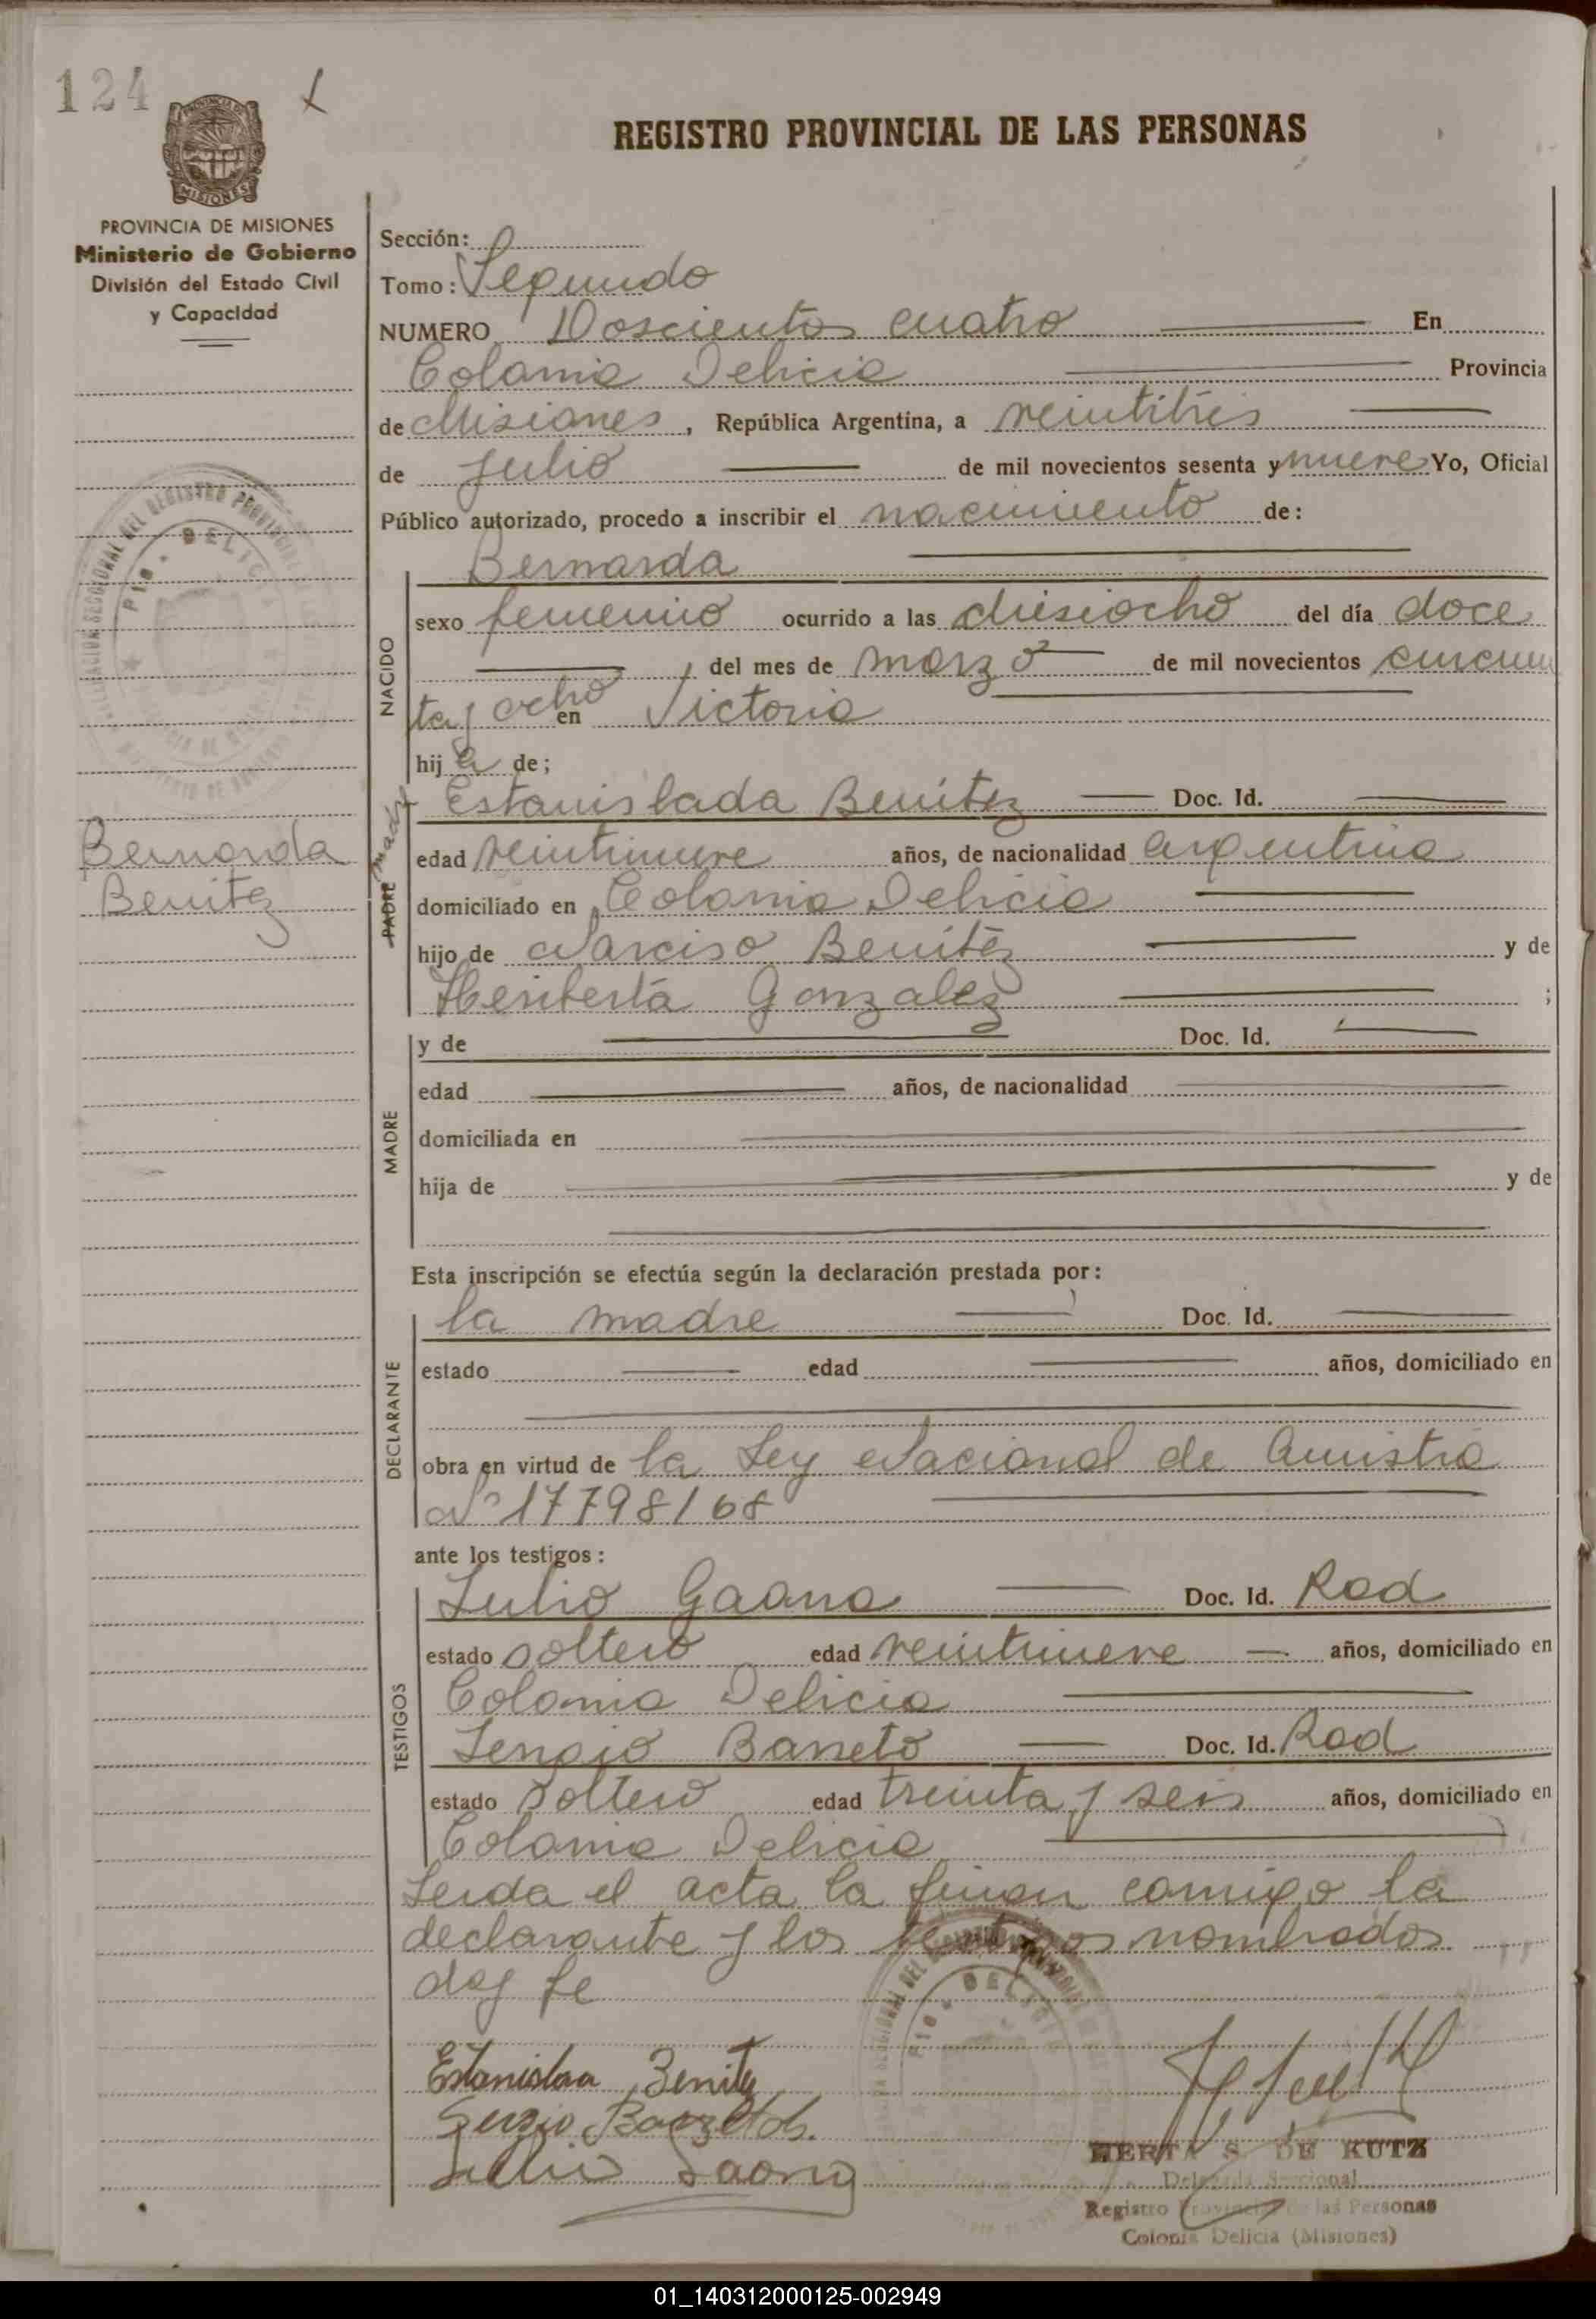 124
REGISTRO PROVINCIAL DE LAS PERSONAS
MISIONES
PROVINCIA DE MISIONES
Ministerio de Gobierno
División del Estado Civil
y Capacidad
Sección:
Tomo: Segundo
NUMERO Doscientos cuatro En
Colonia Delicia Provincia
de Misiones, República Argentina, a veintitrés
de Julio de mil novecientos sesenta y nueve Yo, Oficial
Público autorizado, procedo a inscribir el nacimiento de:
NACIDO
Bernarda
sexo femenino ocurrido a las diesiocho del día doce
del mes de marzo de mil novecientos cincuen
ta y ocho en Victoria
hija de;
PADRE madre
Estanislada Benítez Doc. Id.
Bernarda
Benitez
edad veintinueve años, de nacionalidad argentina
domiciliado en Colonia Delicia
hijo de Narciso Benítez y de
Heriberta Gonzalez ;
MADRE
y de Doc. Id.
edad años, de nacionalidad
domiciliada en
hija de y de
Esta inscripción se efectúa según la declaración prestada por:
DECLARANTE
la madre Doc. Id.
estado edad años, domiciliado en
obra en virtud de la Ley Nacional de Amistia
Nº 17798/68
ante los testigos:
TESTIGOS
Julio Gaona Doc. Id. Rad
estado soltero edad veintinueve años, domiciliado en
Colonia Delicia
Sergio Barreto Doc. Id. Rad
estado soltero edad treinta y seis años, domiciliado en
Colonia Delicia
Leida el acta la firman comigo la
declarante y los testigos nombrados
doy fe
Estanislaa Benitez
Sergio
Julio Gaona
HERTA S. DE KUTZ
Delegada Seccional
Registro Provincial de las Personas
Colonia Delicia (Misiones)
01_140312000125-002949